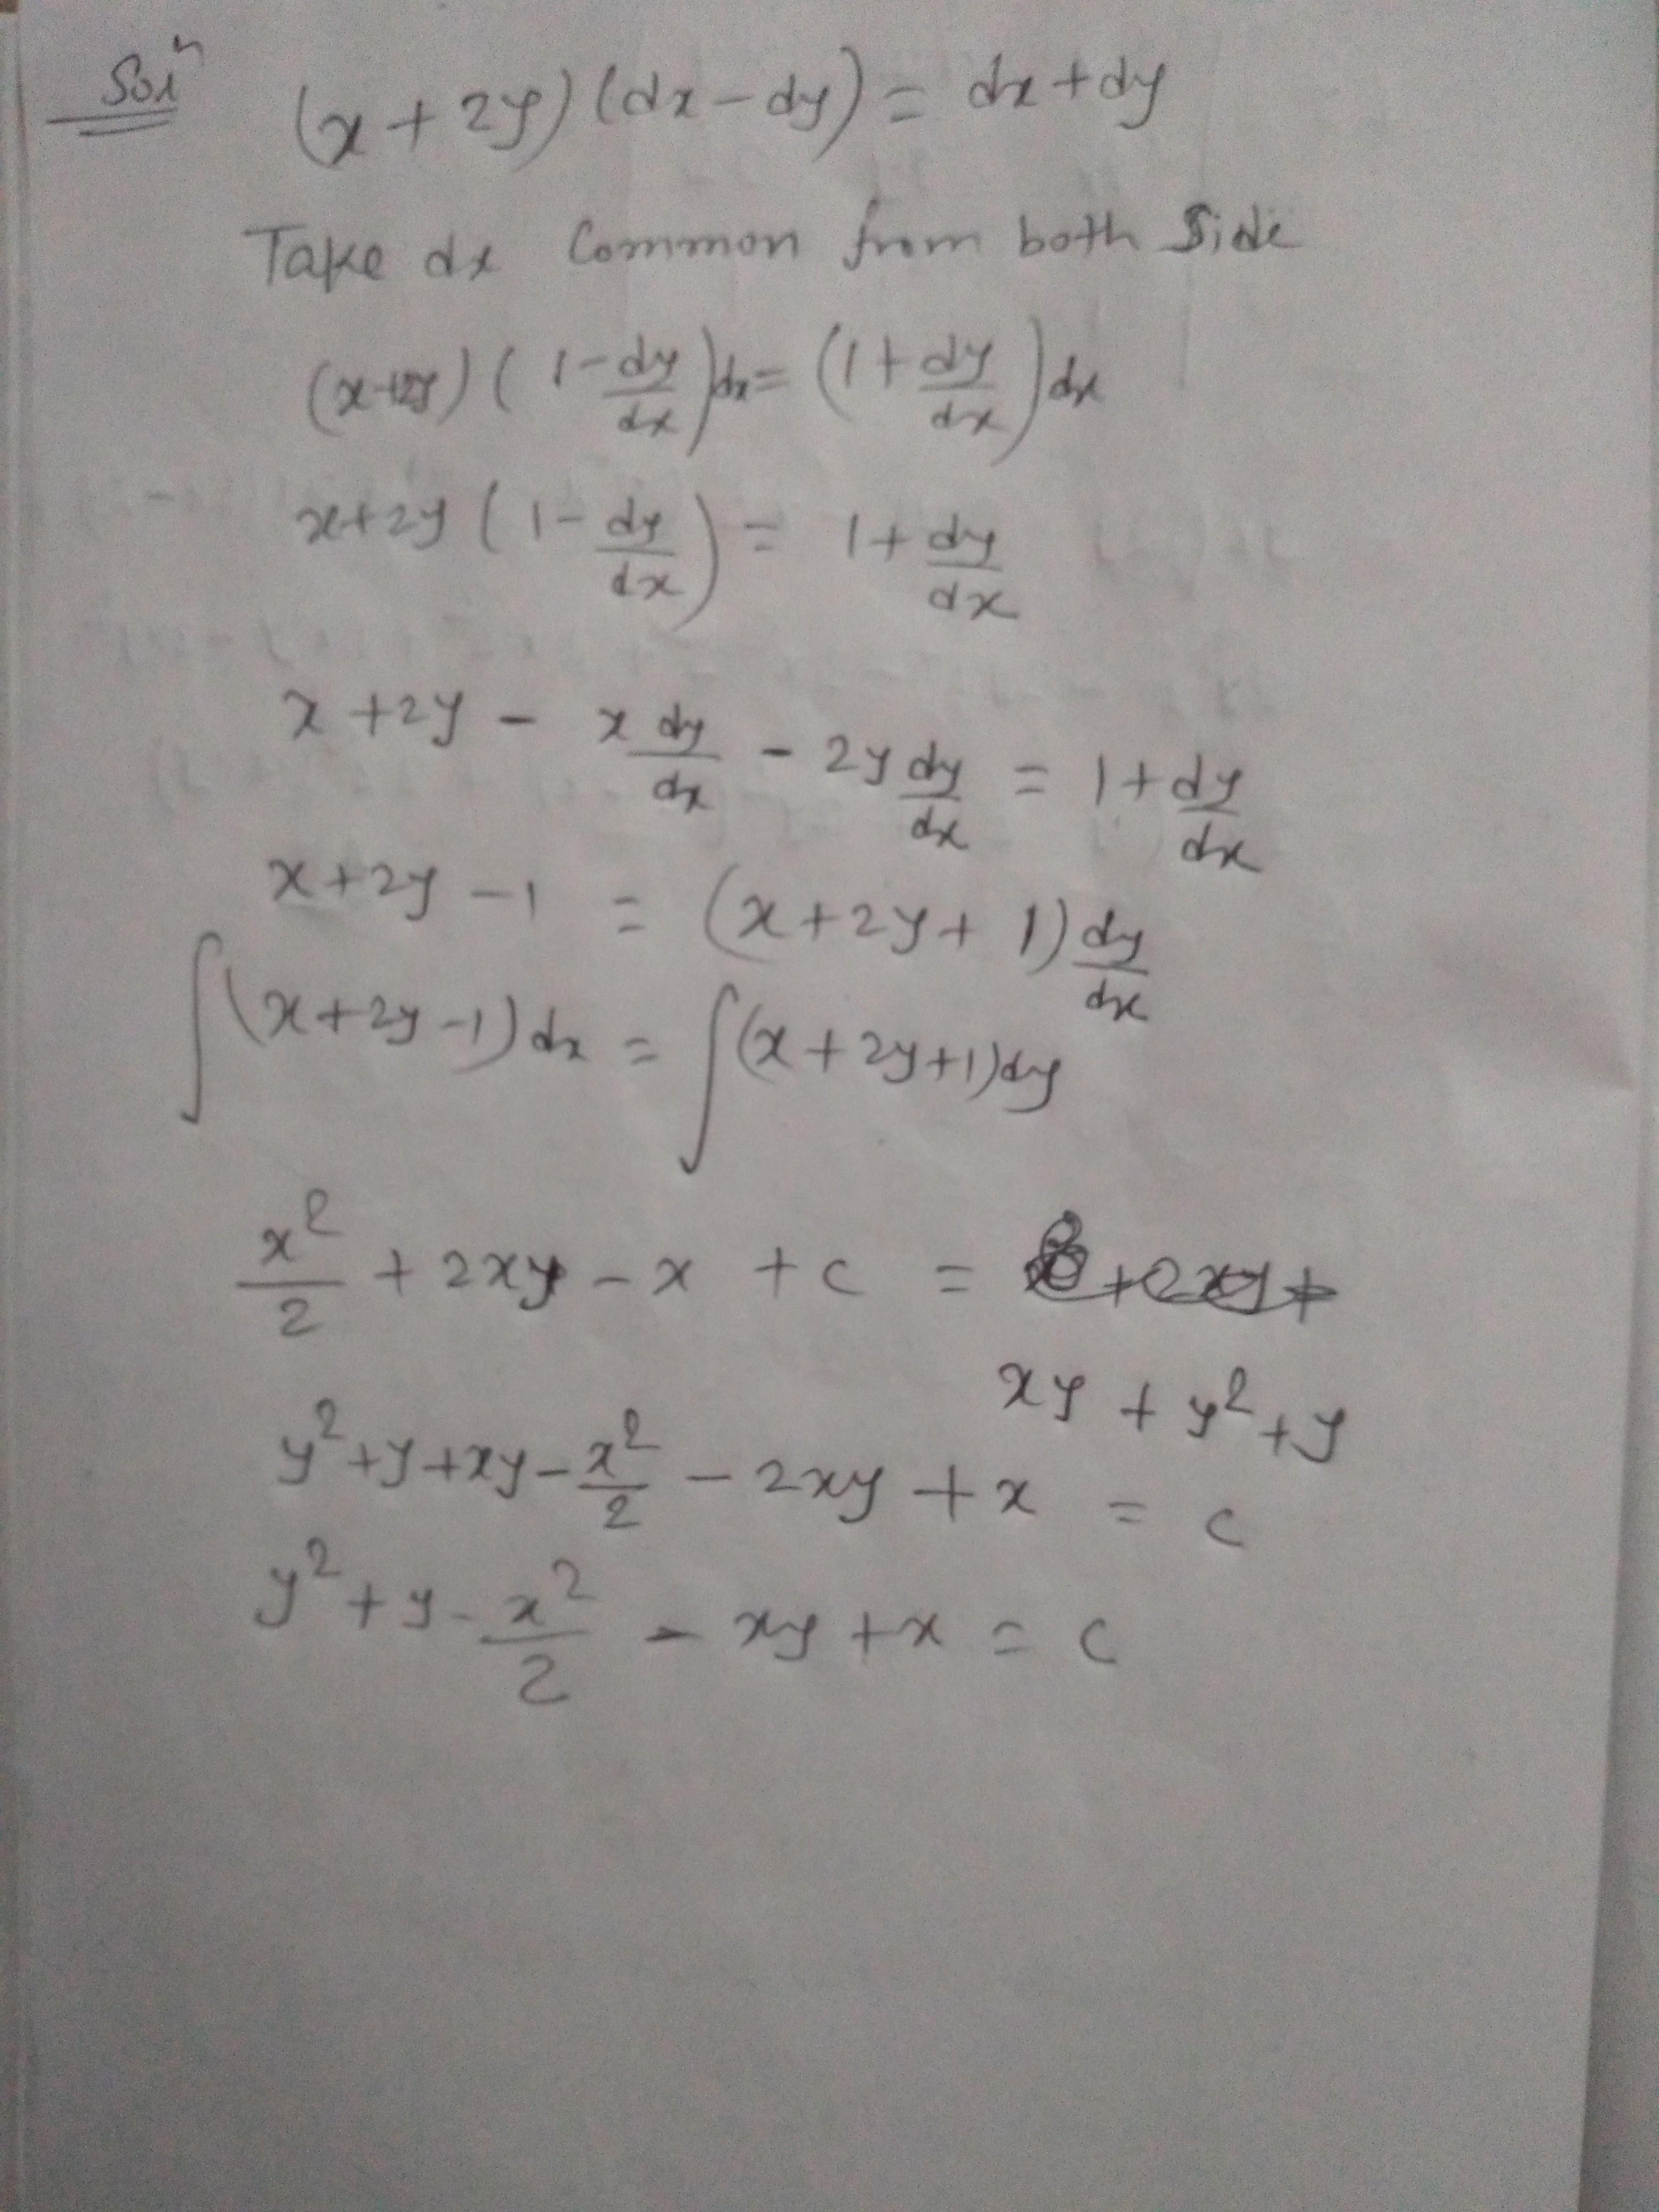 Solⁿ (x + 2y) (dx - dy) = dx + dy
Take dx Common from both Side
(x+2y) (1 - dy/dx) dx = (1 + dy/dx) dx
x+2y (1 - dy/dx) = 1 + dy/dx
x + 2y - x dy/dx - 2y dy/dx = 1 + dy/dx
x + 2y - 1 = (x + 2y + 1) dy/dx
∫(x + 2y - 1) dx = ∫(x + 2y + 1) dy
x²/2 + 2xy - x + c =
xy + y² + y
y² + y + xy - x²/2 - 2xy + x = c
y² + y - x²/2 - xy + x = c